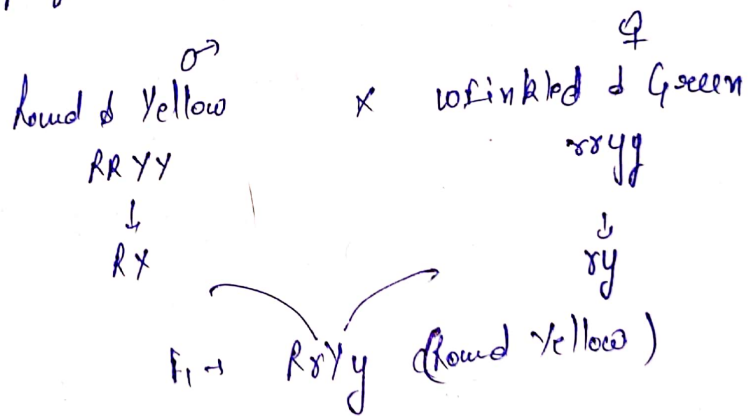 ♂ ♀
Round & Yellow × wrinkled & Green
RRYY rryy
↓ ↓
RY ry
F1 → RrYy (Round Yellow)